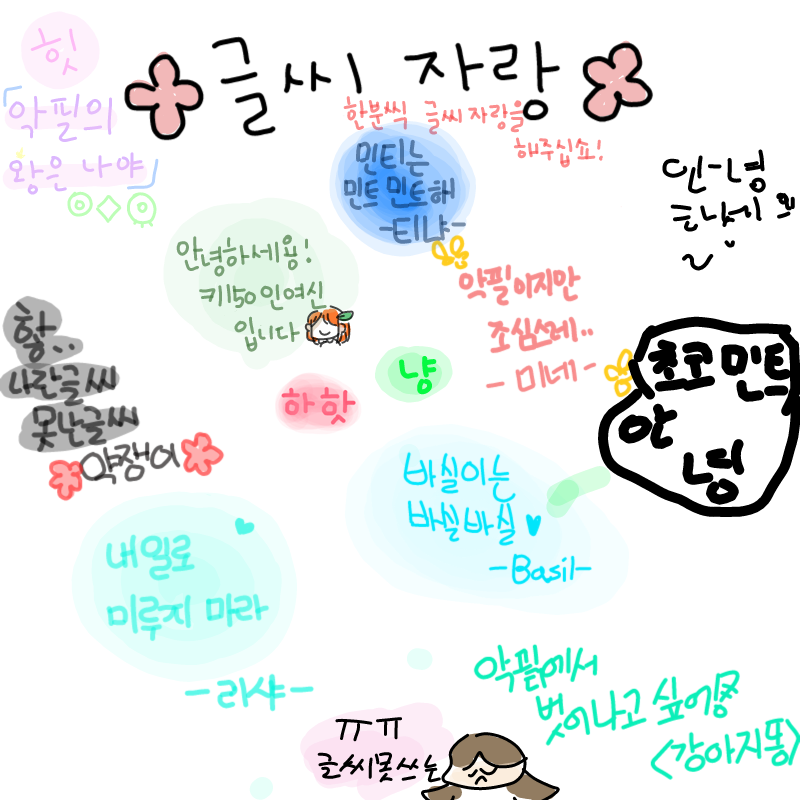 힛
악필의
왕은 나야
글씨 자랑
한분씩 글씨 자랑을
해주십쇼!
민티는
민트 민트해
-티냐-
안녕하세용!
키150 인여신
입니다
악필이지만
조심스레..
- 미네 -
초코 민트
안
녕
핳..
나란글씨
못난글씨
약쟁이
하핫
냥
바실이는
바실바실
-Basil-
내일로
미루지 마라
-라샤-
악필에서
벗어나고 싶어용
<강아지똥>
ㅠㅠ
글씨못쓰는